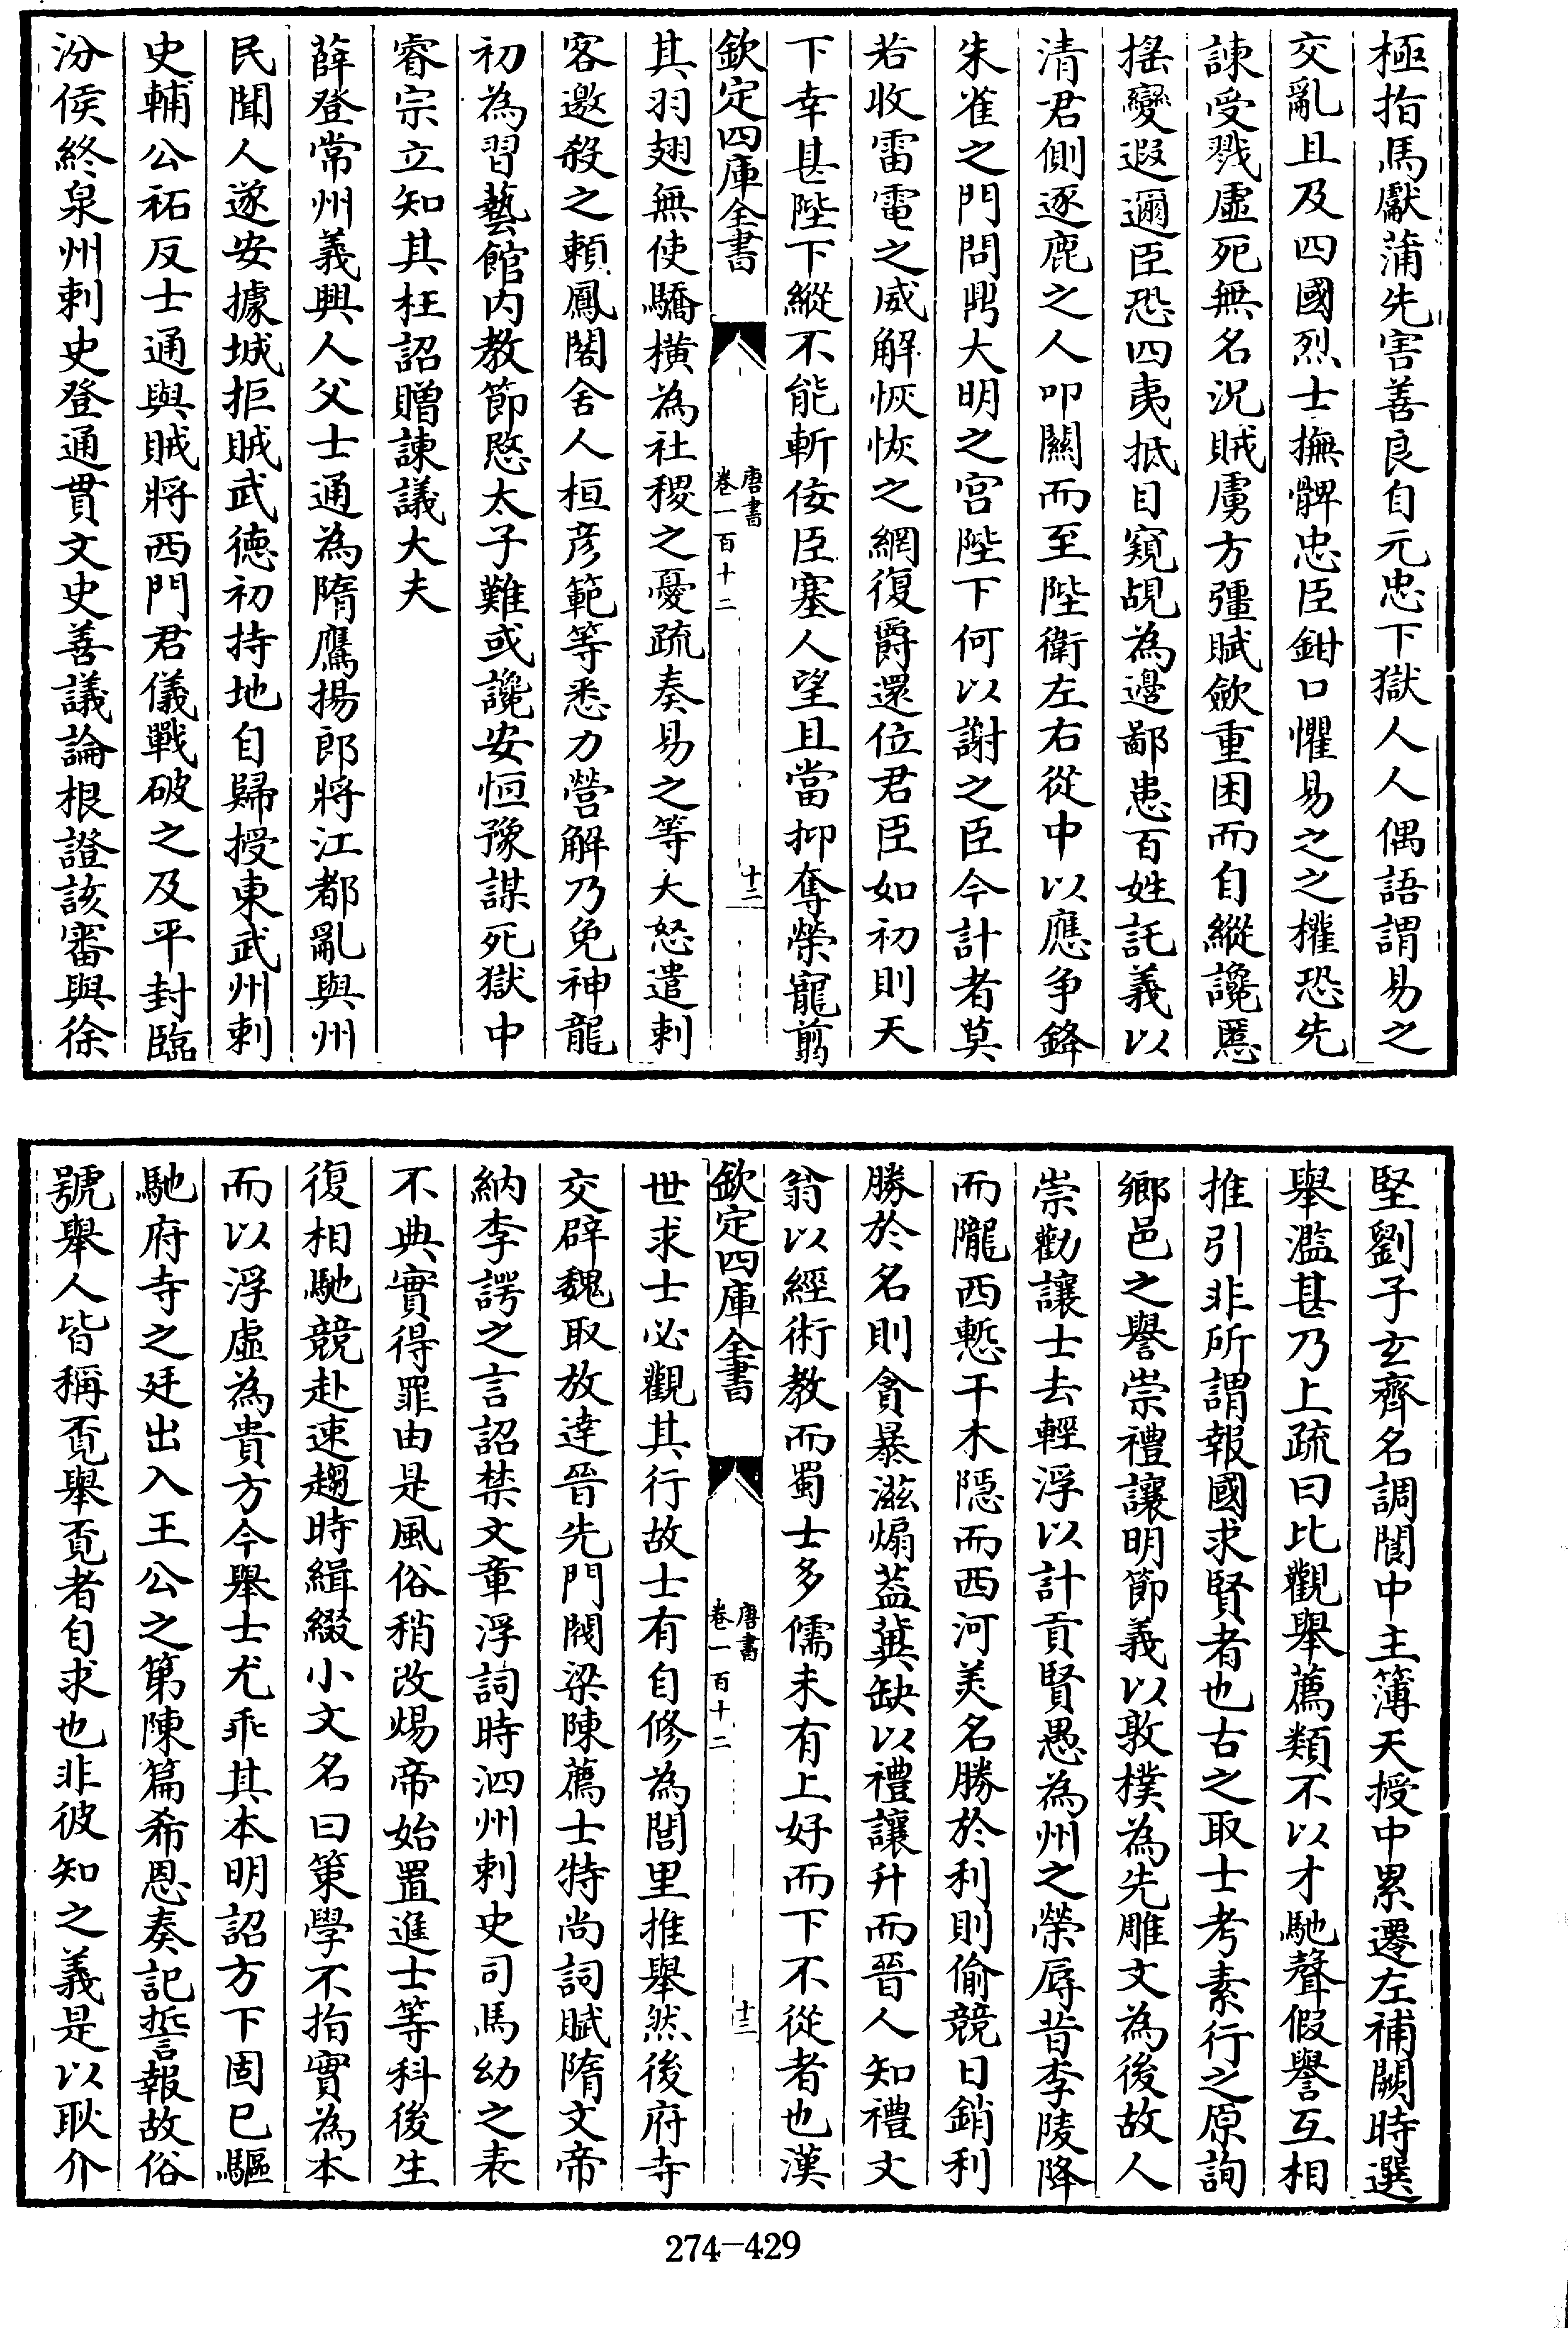 極指馬獻蒲先害善良自元忠下獄人人偶語謂易之
交亂且及四國烈士撫髀忠臣鉗口懼易之之權恐先
諫受戮虛死無名況賊虜方彊賦斂重困而自縱讒慝
搖變遐邇臣恐四夷抵目窺覘為邊鄙患百姓託義以
清君側逐鹿之人叩關而至陛衛左右從中以應爭鋒
朱雀之門問鼎大明之宮陛下何以謝之臣今計者莫
若收雷電之威解恢恢之網復爵還位君臣如初則天
下幸甚陛下縱不能斬佞臣塞人望且當抑奪榮寵翦
欽定四庫全書
唐書
卷一百十二
十二
其羽翅無使驕橫為社稷之憂疏奏易之等大怒遣刺
客邀殺之賴鳳閣舍人桓彦範等悉力營解乃免神龍
初為習藝館内教節愍太子難或讒安恒豫謀死獄中
睿宗立知其枉詔贈諫議大夫
薛登常州義興人父士通為隋鷹揚郎將江都亂與州
民聞人遂安據城拒賊武德初持地自歸授東武州刺
史輔公祏反士通與賊將西門君儀戰破之及平封臨
汾侯終泉州刺史登通貫文史善議論根證該審與徐
堅劉子玄齊名調閬中主簿天授中累遷左補闕時選
舉濫甚乃上疏曰比觀舉薦類不以才馳聲假譽互相
推引非所謂報國求賢者也古之取士考素行之原詢
鄉邑之譽崇禮讓明節義以敦樸為先雕文為後故人
崇勸讓士去輕浮以計貢賢愚為州之榮辱昔李陵降
而隴西慙干木隱而西河美名勝於利則偷競日銷利
勝於名則貪暴滋煽蓋冀缺以禮讓升而晉人知禮文
翁以經術教而蜀士多儒未有上好而下不從者也漢
欽定四庫全書
唐書
卷一百十二
十三
世求士必觀其行故士有自修為閭里推舉然後府寺
交辟魏取放達晉先門閥梁陳薦士特尚詞賦隋文帝
納李諤之言詔禁文章浮詞時泗州刺史司馬幼之表
不典實得罪由是風俗稍改煬帝始置進士等科後生
復相馳競赴速趨時緝綴小文名曰策學不指實為本
而以浮虛為貴方今舉士尤乖其本明詔方下固已驅
馳府寺之廷出入王公之第陳篇希恩奏記誓報故俗
號舉人皆稱覓舉覓者自求也非彼知之義是以耿介
274-429